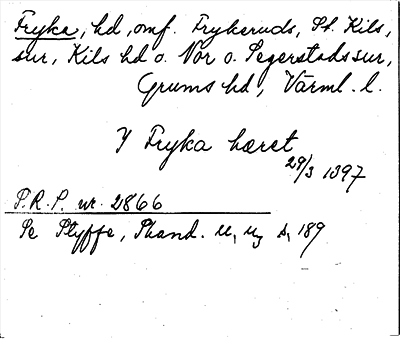 Fryka, hd, omf. Frykeruds, St. Kils,
sur, Kils hd o. Nor o. Segerstads sur,
Grums hd, Värml. l.
Y Fryka hæret
29/3 1397
P.R.P. nr. 2866
Se Styffe, Skand. u, uz s, 189